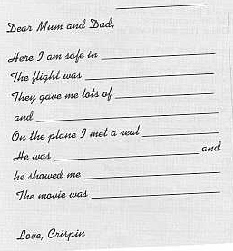 Dear Mum and Dad,
Here I am safe in
The flight was
They gave me lots of
and
On the plane I met a real
He was and
he showed me
The movie was
Love, Crispin